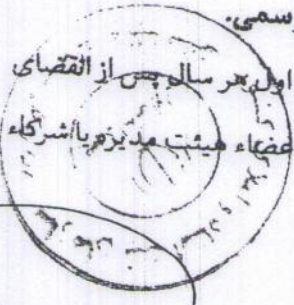 سمی.
اول هر سال پس از انقضای
عضاء هیئت مدیره یا شرکاء